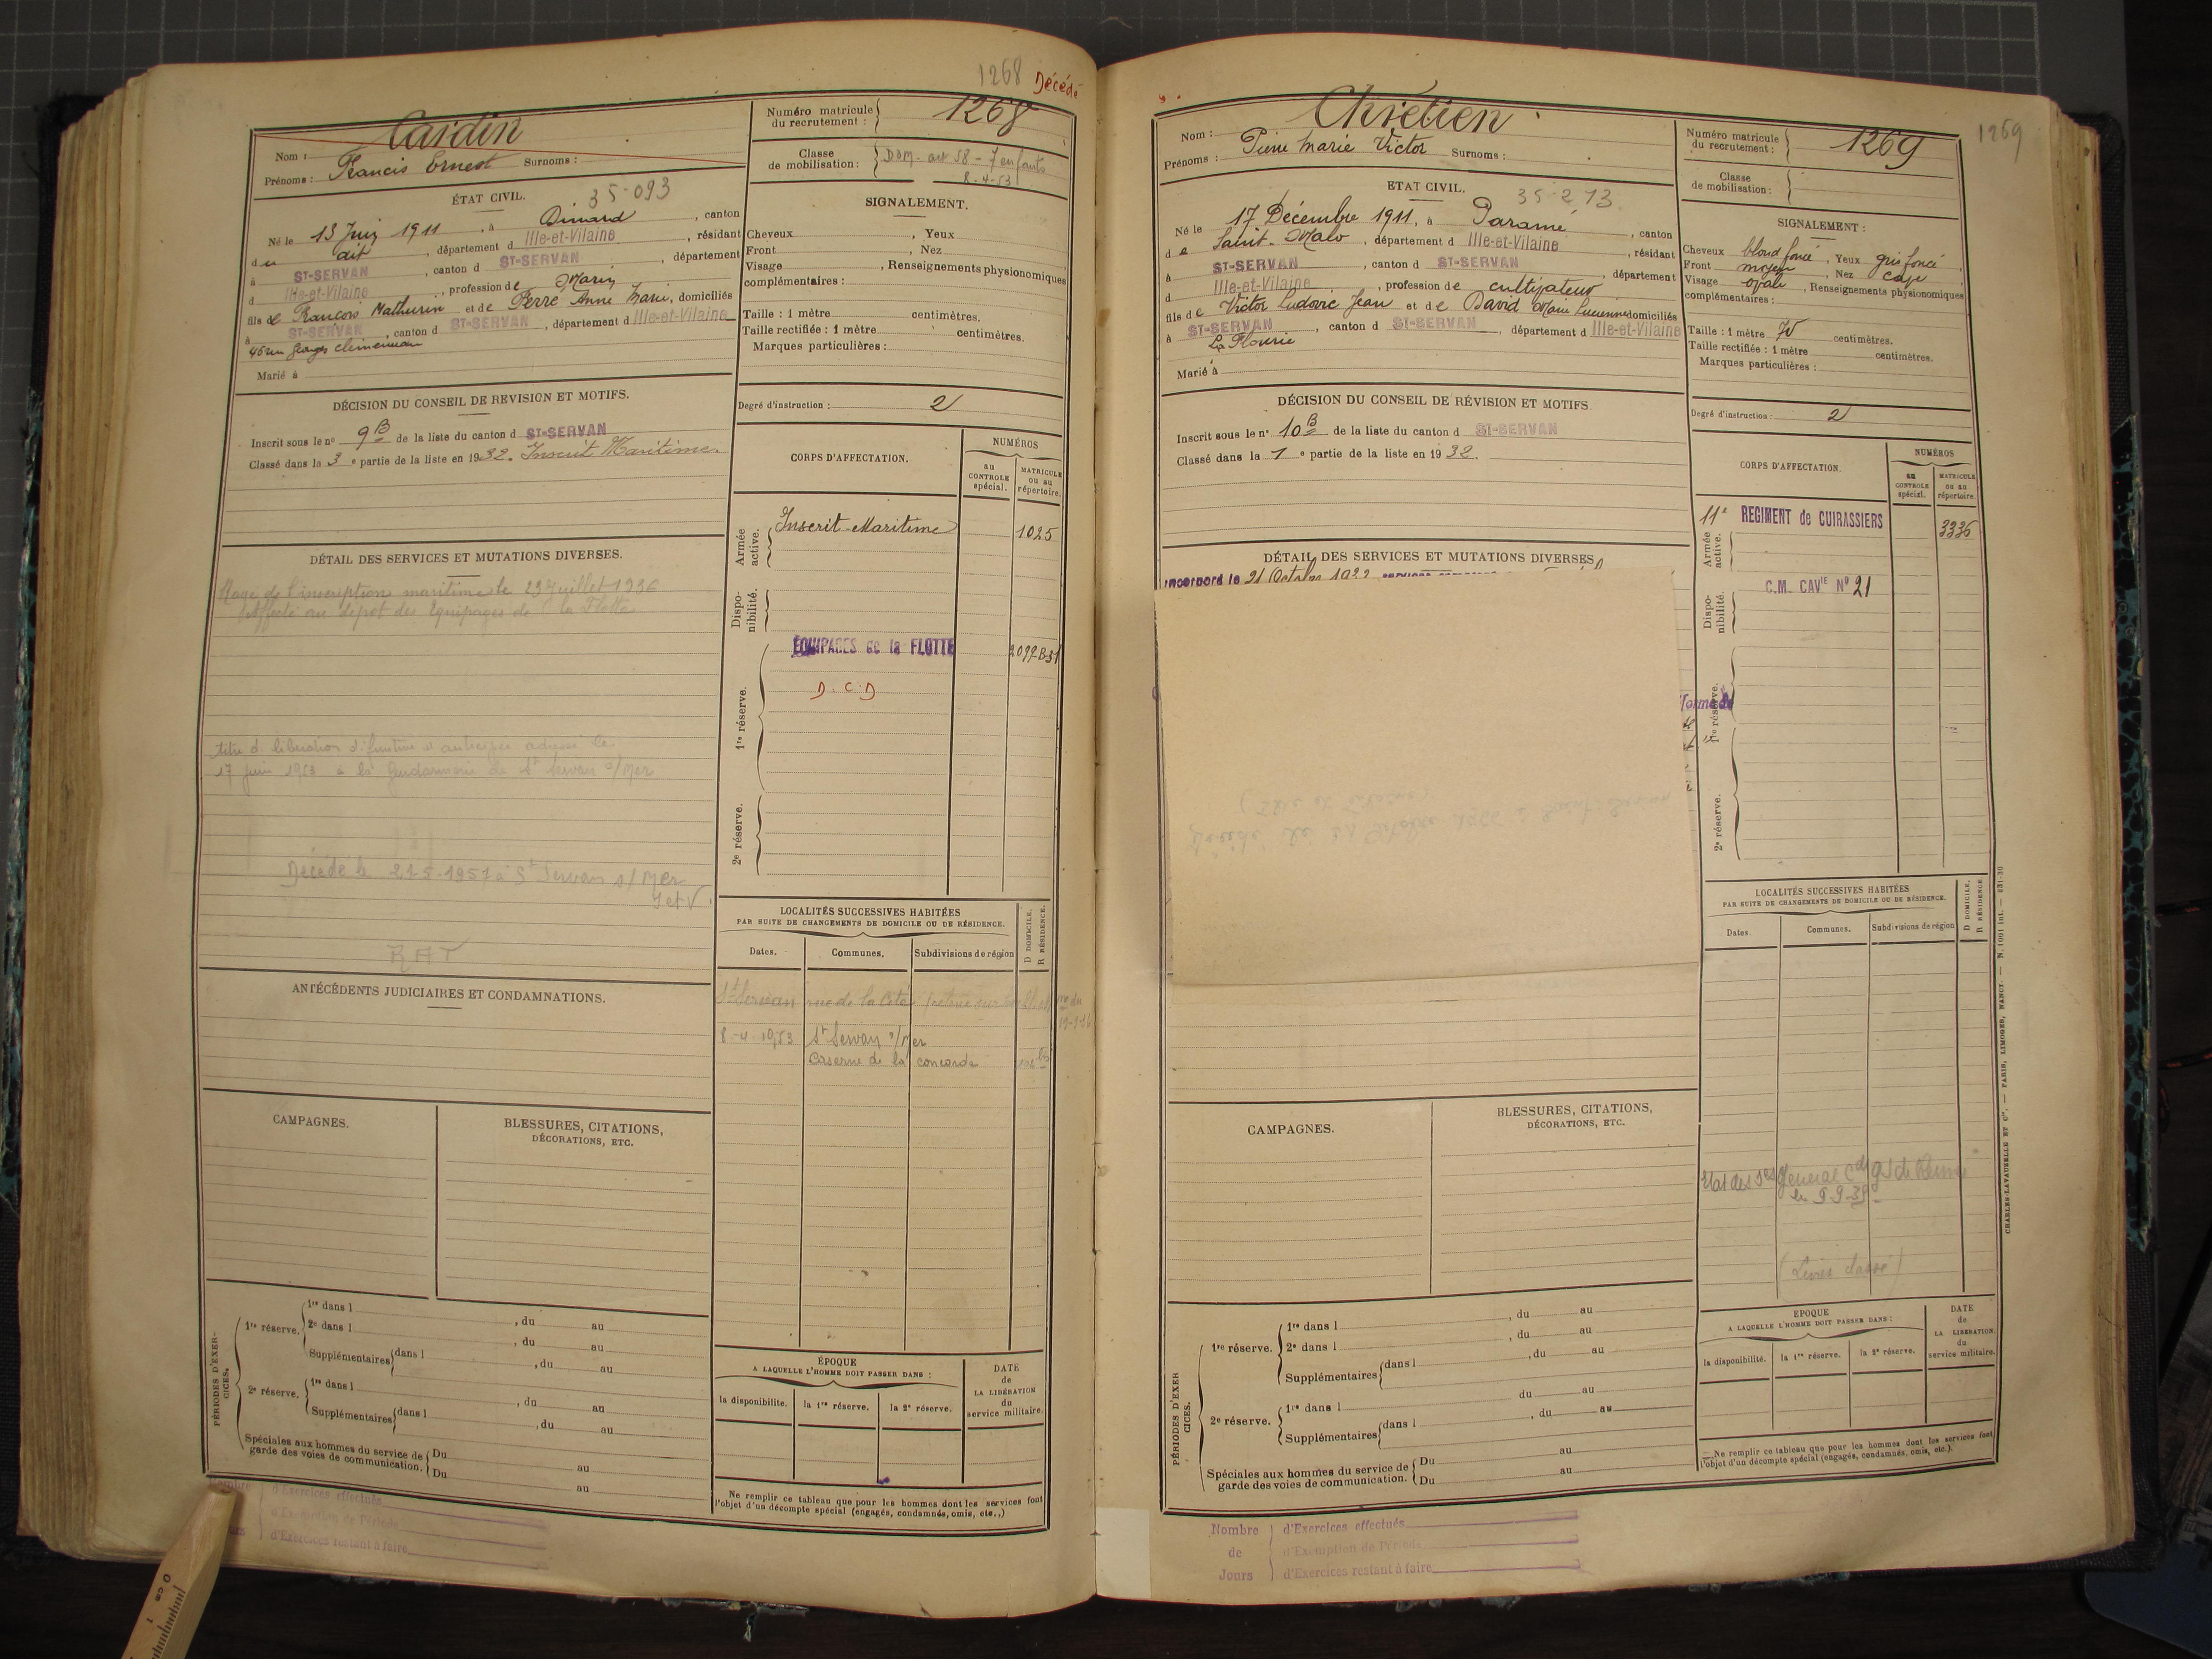 1268 Décédé
Nom : Cardin
Prénoms : Francis Ernest Surnoms :
Numéro matricule du recrutement : 1268
Classe de mobilisation : DDM. art 58 - 7 enfants
8-4-53
ÉTAT CIVIL.
35-093
Né le 13 Juin 1911, à Dinard, canton
du dit, département d Ille-et-Vilaine, résidant
à ST-SERVAN, canton d ST-SERVAN, département
d Ille-et-Vilaine, profession de Marin
fils de François Mathurin et de Perré Anne Marie, domiciliés
à ST-SERVAN canton d ST-SERVAN, département d Ille-et-Vilaine
45 rue Georges Clémenceau
Marié à
SIGNALEMENT.
Cheveux , Yeux
Front , Nez
Visage , Renseignements physionomiques
complémentaires :
Taille : 1 mètre centimètres.
Taille rectifiée : 1 mètre centimètres.
Marques particulières :
Degré d'instruction : 2
DÉCISION DU CONSEIL DE REVISION ET MOTIFS.
Inscrit sous le n° 9 B de la liste du canton d ST-SERVAN
Classé dans la 3 e partie de la liste en 1932. Inscrit Maritime.
CORPS D'AFFECTATION.
NUMÉROS
au CONTROLE spécial.
MATRICULE ou au répertoire.
Armée active.
Inscrit Maritime 1025
Disponibilité.
1re réserve.
ÉQUIPAGES de la FLOTTE
D.C.D
2e réserve.
DÉTAIL DES SERVICES ET MUTATIONS DIVERSES.
Rayé de l'inscription maritime le 23 Juillet 1936
Affecté au dépôt des Equipages de la Flotte
titre de libération définitive et anticipée adressé le
17 juin 1953 à la Gendarmerie de St Servan s/Mer
Décédé le 21-5-1957 à St Servan s/Mer
I et V.
RAT
ANTÉCÉDENTS JUDICIAIRES ET CONDAMNATIONS.
LOCALITÉS SUCCESSIVES HABITÉES
PAR SUITE DE CHANGEMENTS DE DOMICILE OU DE RÉSIDENCE.
Dates. Communes. Subdivisions de région
D DOMICILE.
R RÉSIDENCE.
St Servan rue de la Cité
8-4-1953 St Servan s/Mer
Caserne de la concorde
CAMPAGNES.
BLESSURES, CITATIONS,
DÉCORATIONS, ETC.
PÉRIODES D'EXERCICES.
1re réserve.
1re dans l , du au
2e dans l , du au
Supplémentaires dans l , du au
2e réserve.
1re dans l , du au
Supplémentaires dans l , du au
Spéciales aux hommes du service de garde des voies de communication.
Du au
Du au
ÉPOQUE
A LAQUELLE L'HOMME DOIT PASSER DANS :
la disponibilité. la 1re réserve. la 2e réserve.
DATE de LA LIBÉRATION du service militaire.
Ne remplir ce tableau que pour les hommes dont les services font
l'objet d'un décompte spécial (engagés, condamnés, omis, etc.,)
Nombre d'Exercices effectués
d'Exemption de Période
Jours d'Exercices restant à faire
1269
Nom : Chrétien
Prénoms : Pierre Marie Victor Surnoms :
Numéro matricule du recrutement : 1269
Classe de mobilisation :
ETAT CIVIL.
35-2 73.
Né le 17 Décembre 1911, à Paramé, canton
de Saint-Malo, département d Ille-et-Vilaine, résidant
à ST-SERVAN, canton d ST-SERVAN, département
d Ille-et-Vilaine, profession de cultivateur
fils de Victor Ludovic Jean et de David Marie Lucienne domiciliés
à ST-SERVAN, canton d ST-SERVAN, département d Ille-et-Vilaine
La Flourie
Marié à
SIGNALEMENT :
Cheveux blond foncé, Yeux gris foncé
Front moyen, Nez
Visage ovale, Renseignements physionomiques
complémentaires :
Taille : 1 mètre 70 centimètres.
Taille rectifiée : 1 mètre centimètres.
Marques particulières :
Degré d'instruction : 2
DÉCISION DU CONSEIL DE RÉVISION ET MOTIFS
Inscrit sous le n° 10 B de la liste du canton d ST-SERVAN
Classé dans la 1 e partie de la liste en 1932.
CORPS D'AFFECTATION.
NUMÉROS
au CONTROLE spécial.
MATRICULE ou au répertoire.
Armée active.
11e REGIMENT de CUIRASSIERS 3336
Disponibilité.
C.M. CAVIE N° 21
1re réserve.
2e réserve.
DÉTAIL DES SERVICES ET MUTATIONS DIVERSES
Incorporé le 21 Octobre 1932
LOCALITÉS SUCCESSIVES HABITÉES
PAR SUITE DE CHANGEMENTS DE DOMICILE OU DE RÉSIDENCE.
Dates. Communes. Subdivisions de région
D DOMICILE.
R RÉSIDENCE.
le 9 9 39
CAMPAGNES.
BLESSURES, CITATIONS,
DÉCORATIONS, ETC.
PÉRIODES D'EXERCICES.
1re réserve.
1re dans l , du au
2e dans l , du au
Supplémentaires dans l , du au
2e réserve.
du au
1re dans l , du au
Supplémentaires dans l
Spéciales aux hommes du service de garde des voies de communication.
Du au
Du au
EPOQUE
A LAQUELLE L'HOMME DOIT PASSER DANS :
la disponibilité. la 1re réserve. la 2e réserve.
DATE de LA LIBÉRATION du service militaire.
— Ne remplir ce tableau que pour les hommes dont les services font
l'objet d'un décompte spécial (engagés, condamnés, omis, etc.).
CHARLES-LAVAUZELLE ET Cie. — PARIS, LIMOGES, NANCY. — N. 1001 Int. — 831-30
Nombre d'Exercices effectués
de d'Exemption de Période
Jours d'Exercices restant à faire